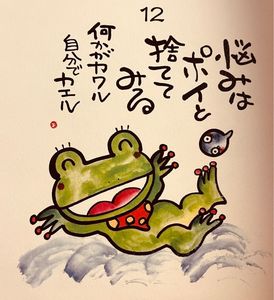 12
悩みは
ポイと
捨てて
みる
何かがカワル
自分でカエル